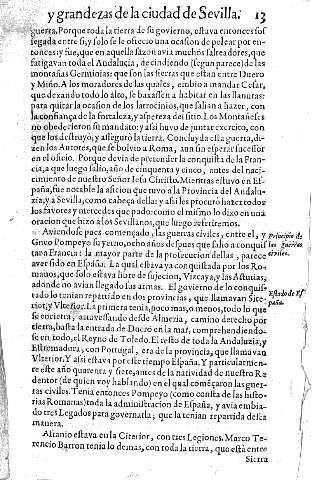 y grandezas de la ciudad de Sevilla. 13
guerra, Porque toda la tierra de su govierno, estava entonces sos
segada entre si, y solo se le ofrecio una ocasion de pelear por en-
tonces: y fue, que en aquella sazon avia muchos salteadores, que
fatigavan toda el Andaluzia, decindiendo (segun parece) de las
montañas Germinias: que son las sierras que estan entre Duero
y Miño. A los moradores de las quales, embio a mandar Cesar,
que dexando todo lo alto, se baxassen a habitar en las llanuras:
para quitar la ocasion de los latrocinios, que salian a hazer, con
la confiança de la fortaleza, y aspereza del sitio. Los Montañeses
no obedecieron su mandato; y assi huvo de juntar exercito, con
que los destruyó, y asseguró la tierra. Concluyda esta guerra, di-
zen los Autores, que se bolvio a Roma, aun sin esperar sucessor
en el oficio. Porque devia de pretender la conquista de la Fran-
cia, a que luego salio, año de cincuenta y cinco, antes del naci-
miento de nuestro Señor Iesu Christo. Mientras estuvo en Es-
paña, fue notable la aficion que tuvo a la Provincia del Andalu-
zia, y a Sevilla, como cabeça della: y assi les procuró hazer todos
los favores y mercedes que pudo: como el mismo lo dixo en una
oracion que hizo a los Sevillanos, que luego referiremos.
Aviendose pues començado, las guerras civiles, entre el, y
Gneo Pompeyo su yerno, ocho años despues que salio a conquis
tar a Francia: la mayor parte de la prosecucion dellas, parece
aver sido en España. La qual estava ya conquistada por los Ro-
manos, que solo estava libre de sujecion, Vizcaya, y las Asturias;
adonde no avian llegado sus armas. El govierno de lo conquis-
tado lo tenian repartido en dos provincias, que llamavan Cite-
rior, y Vlterior. La primera tenia, poco mas, o menos, todo lo que
se encierra, atravessando desde Almeria, camino derecho por
tierra, hasta la entrada de Duero en la mar, comprehendiendo-
se en todo, el Reyno de Toledo. El resto de toda la Andaluzia, y
Estremadura, con Portugal, era de la provincia, que llamavan
Vlterior. Y assi estava por este tiempo España. Y particularmen-
te este año quarenta y siete, antes de la natividad de nuestro Re
dentor (de quien voy hablando) en el qual començaron las guer-
ras civiles. Tenia entonces Pompeyo (como consta de las histo-
rias Romanas) toda la administracion de España, y avia embia-
do tres Legados para governarla, que la tenian repartida desta
manera.
Afranio estava en la Citerior, con tres Legiones. Marco Te-
rencio Barron tenia lo de mas, con toda la tierra, que está entre
Sierra
Principio de
las guerras
civiles.
Estado de Es
paña.